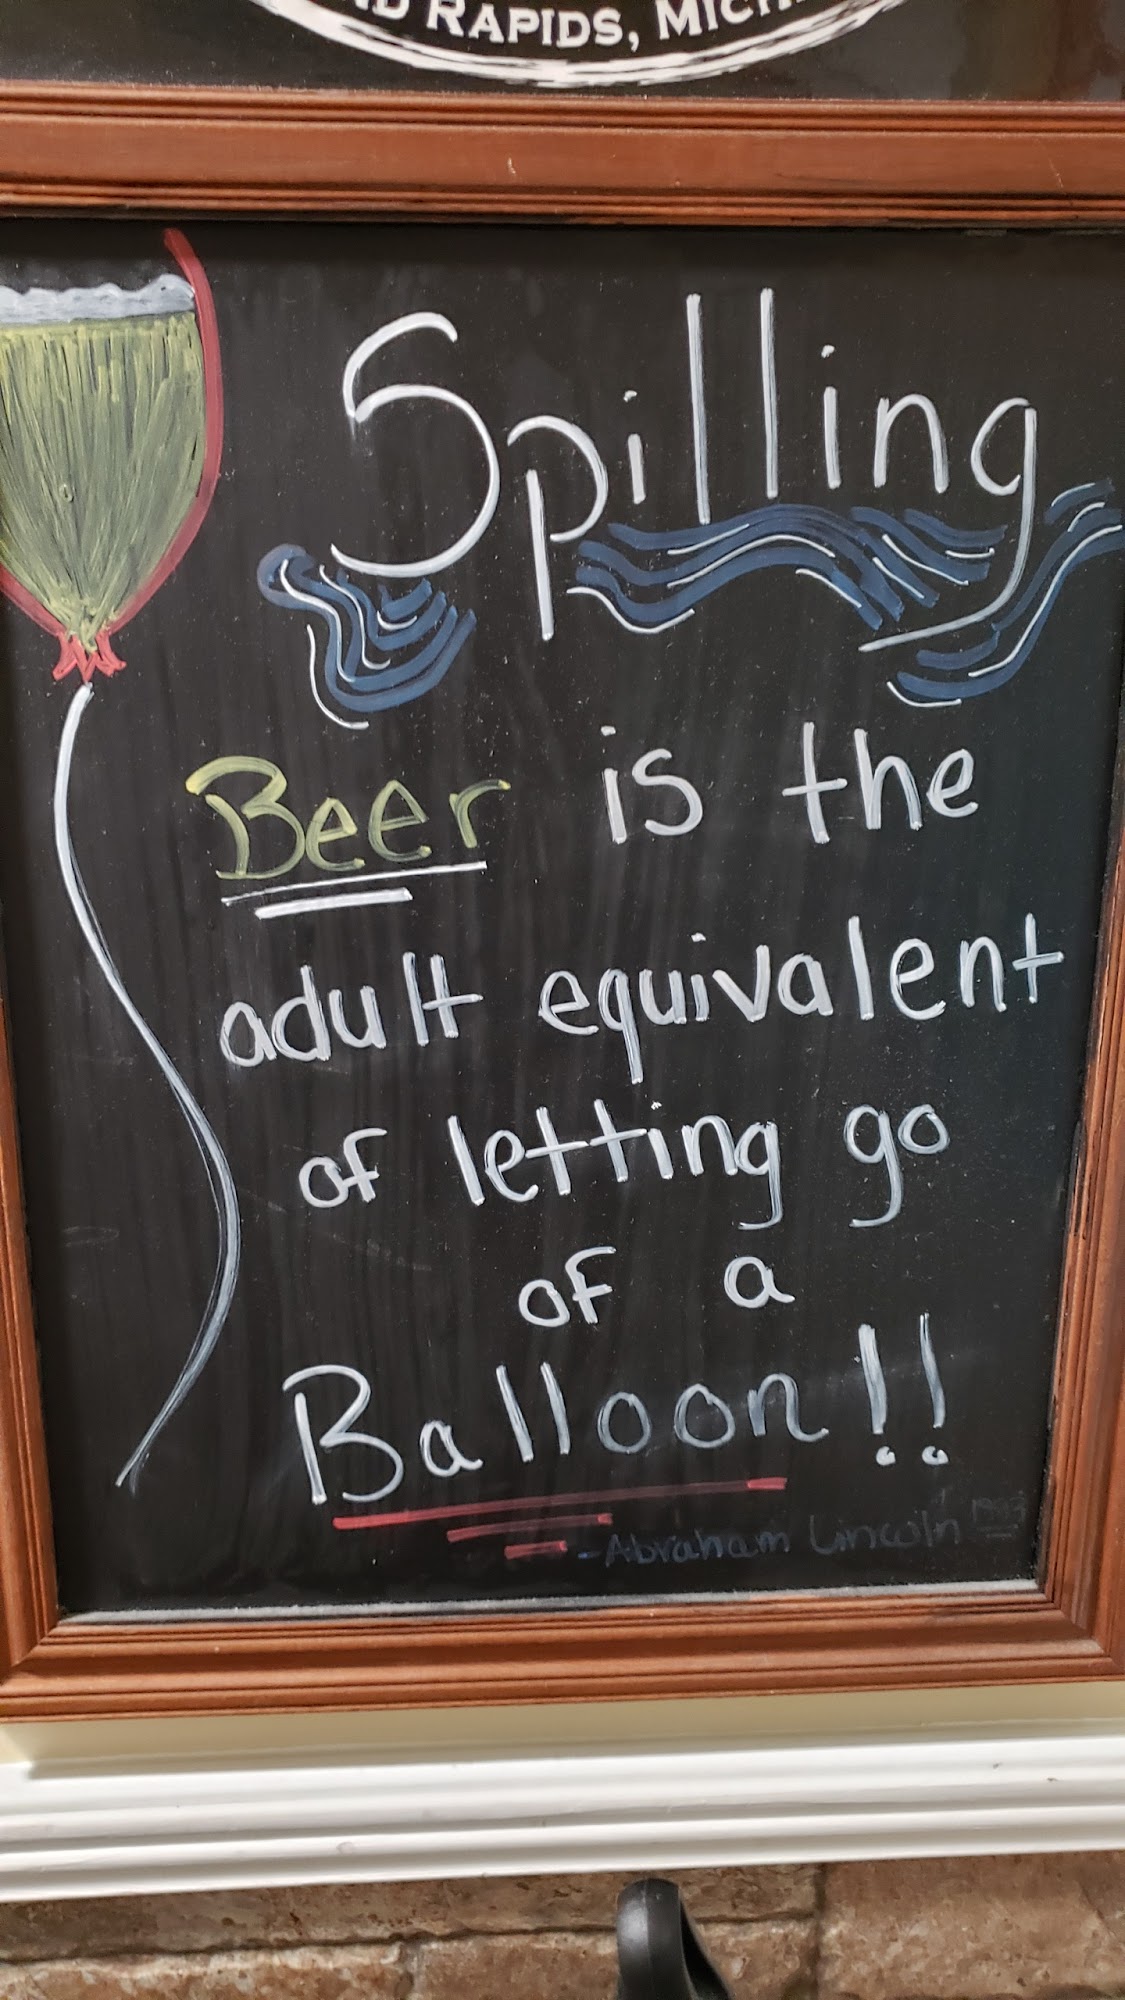 RAPIDS,
Spilling
Beer is the
adult equivalent
of letting go
of a
Balloon!!
-Abraham Lincoln